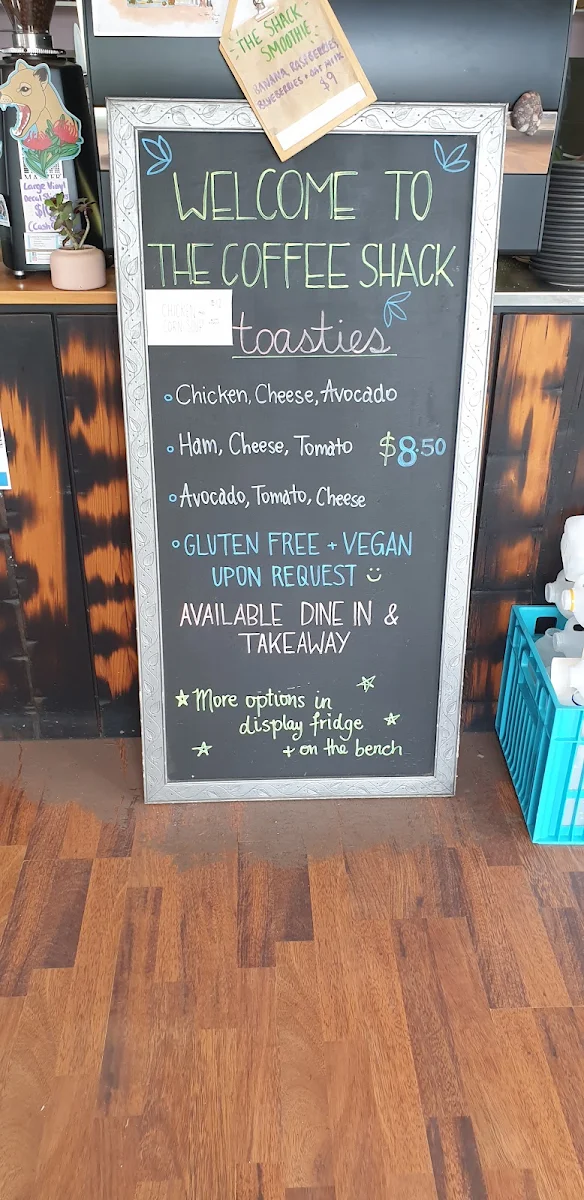 THE SHACK
SMOOTHIE
BANANA, RASPBERRIES,
BLUEBERRIES + OAT MILK
$9
Large Vinyl
WELCOME TO
THE COFFEE SHACK
CHICKEN
$12
toasties
Chicken, Cheese, Avocado
Ham, Cheese, Tomato $8.50
Avocado, Tomato, Cheese
GLUTEN FREE + VEGAN
UPON REQUEST
AVAILABLE DINE IN &
TAKEAWAY
More options in
display fridge
+ on the bench